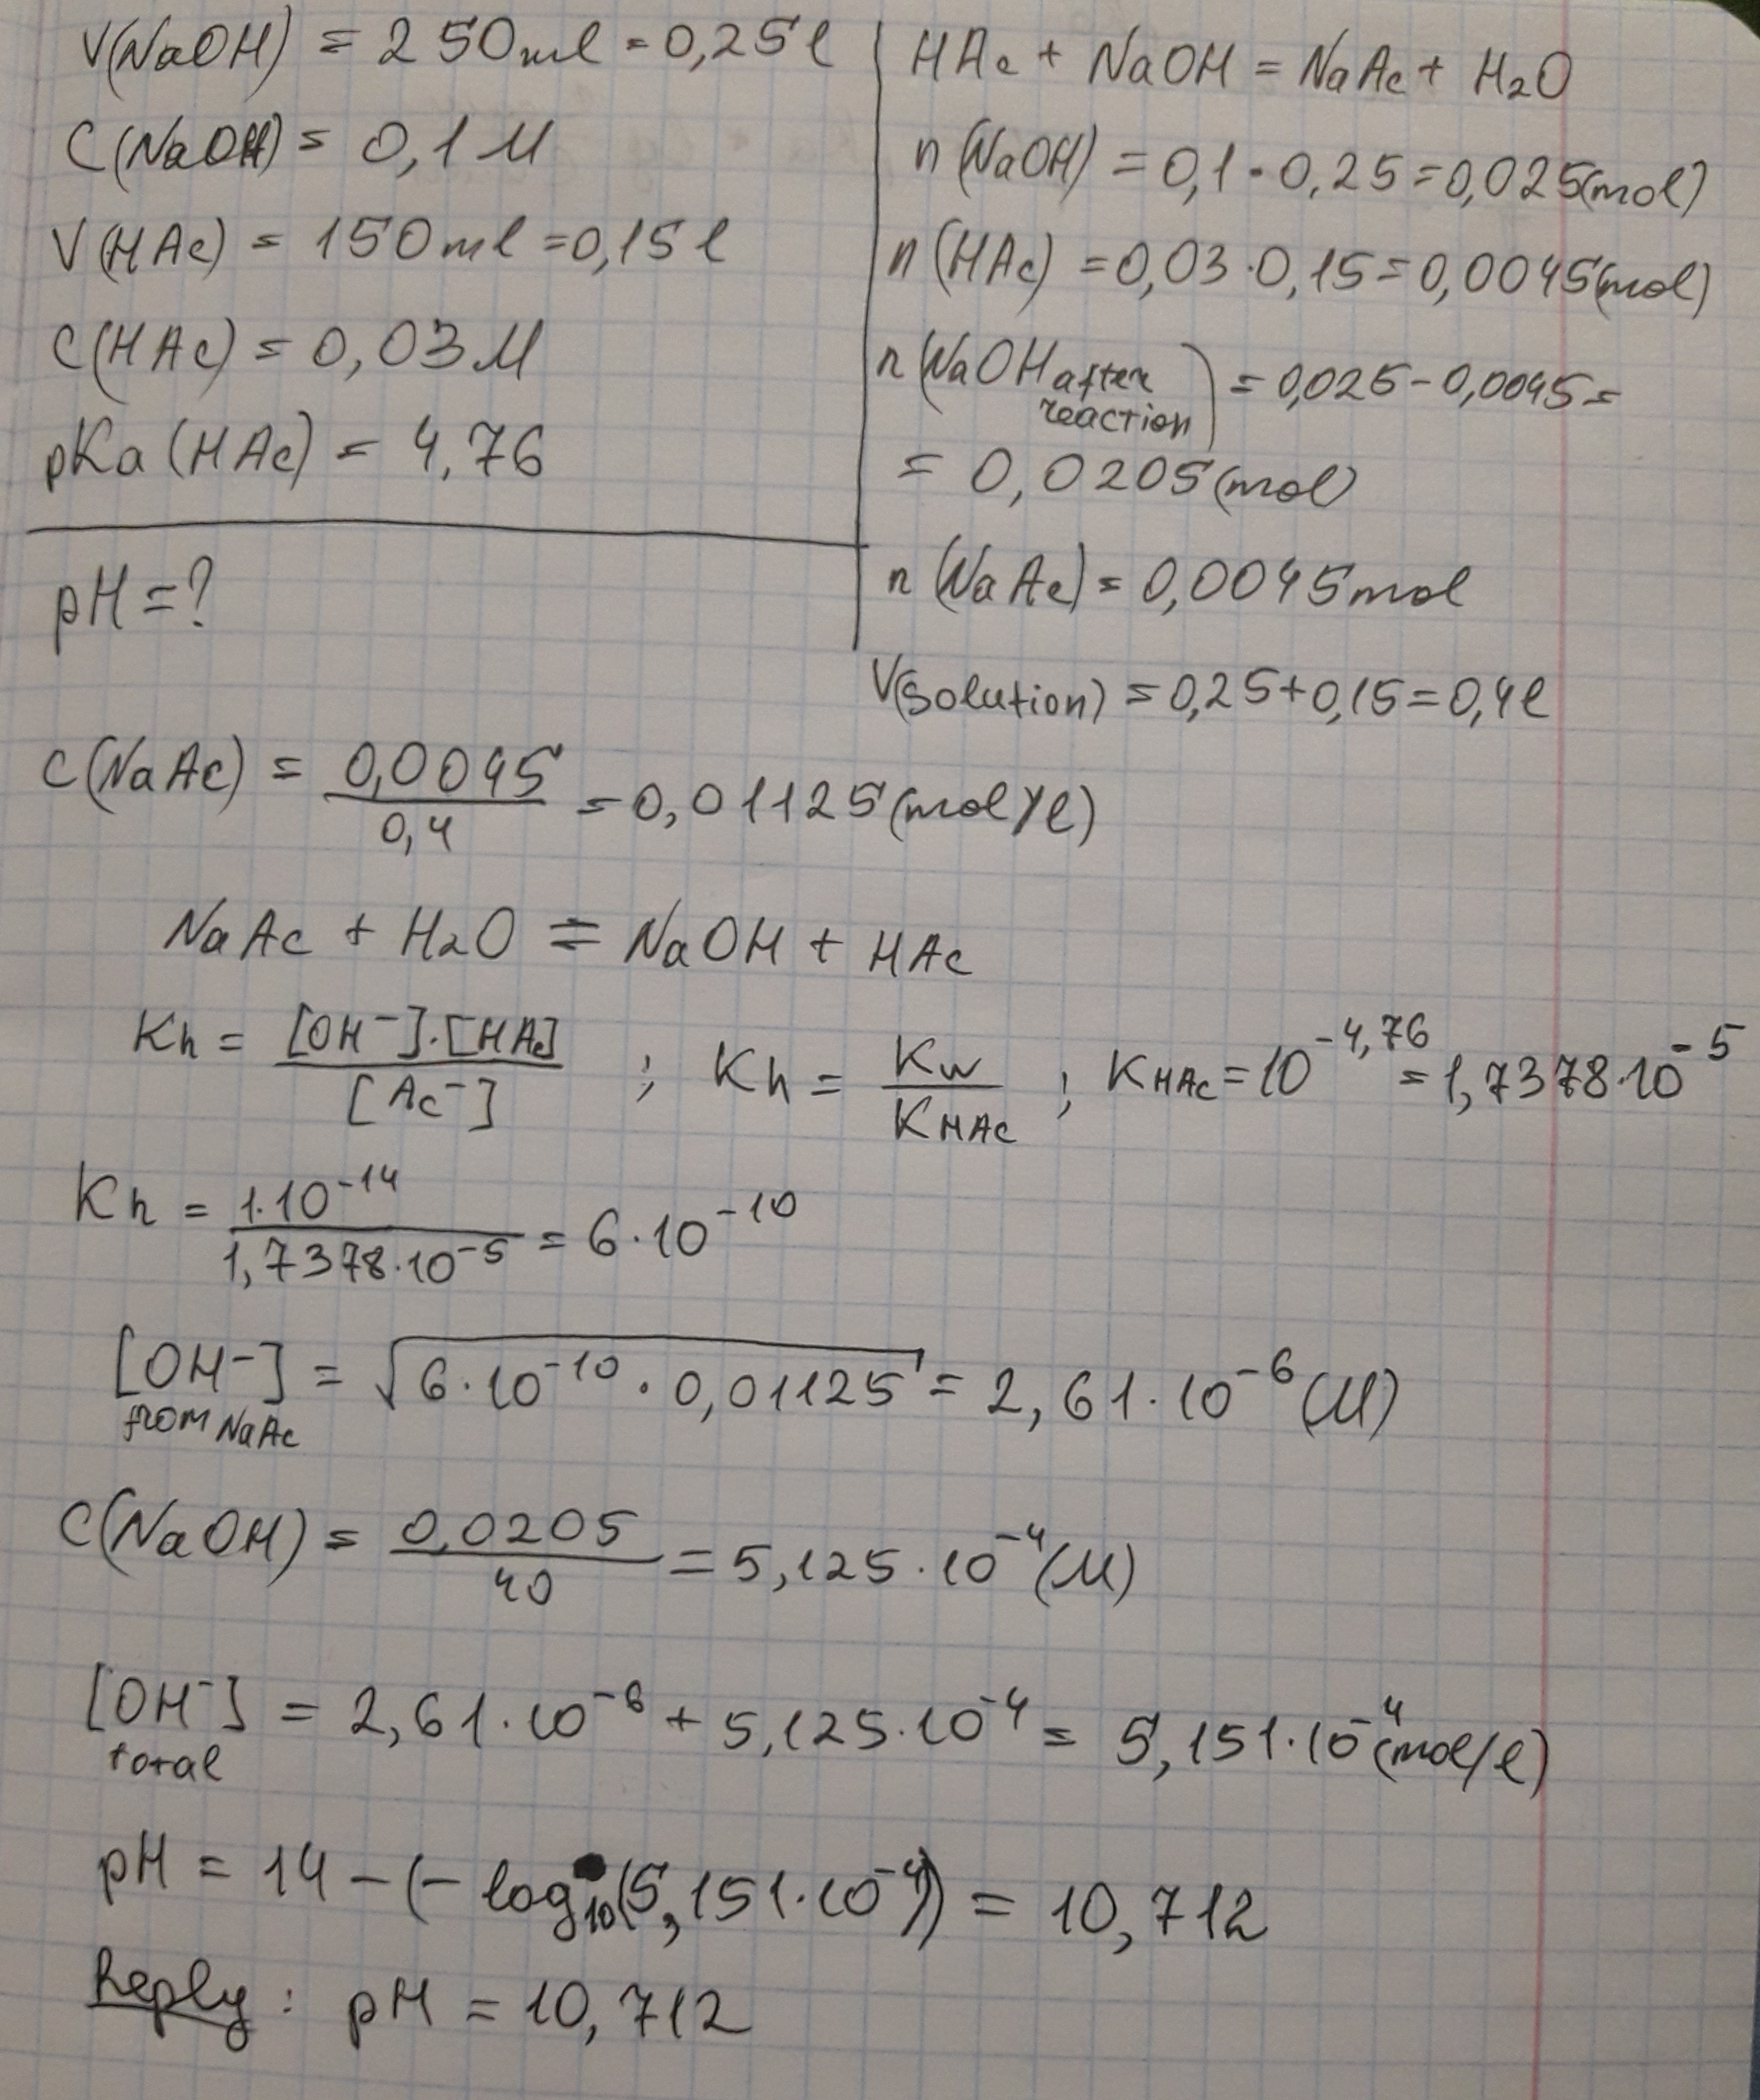 V(NaOH) = 250ml = 0,25l
C(NaOH) = 0,1M
V(HAc) = 150ml = 0,15l
C(HAc) = 0,03M
pKa(HAc) = 4,76
pH = ?
HAc + NaOH = NaAc + H2O
n(NaOH) = 0,1 · 0,25 = 0,025(mol)
n(HAc) = 0,03 · 0,15 = 0,0045(mol)
n(NaOH after reaction) = 0,025 - 0,0045 =
= 0,0205(mol)
n(NaAc) = 0,0045mol
V(solution) = 0,25 + 0,15 = 0,4l
C(NaAc) = 0,0045 / 0,4 = 0,01125(mol/l)
NaAc + H2O ⇌ NaOH + HAc
Kh = [OH⁻]·[HAc] / [Ac⁻] ; Kh = Kw / KHAc ; KHAc = 10^-4,76 = 1,7378·10^-5
Kh = 1·10^-14 / 1,7378·10^-5 = 6·10^-10
[OH⁻] from NaAc = √6·10^-10 · 0,01125 = 2,61·10^-6 (M)
C(NaOH) = 0,0205 / 40 = 5,125·10^-4 (M)
[OH⁻] total = 2,61·10^-6 + 5,125·10^-4 = 5,151·10^-4 (mol/l)
pH = 14 - (- log10(5,151·10^-4)) = 10,712
Reply: pH = 10,712